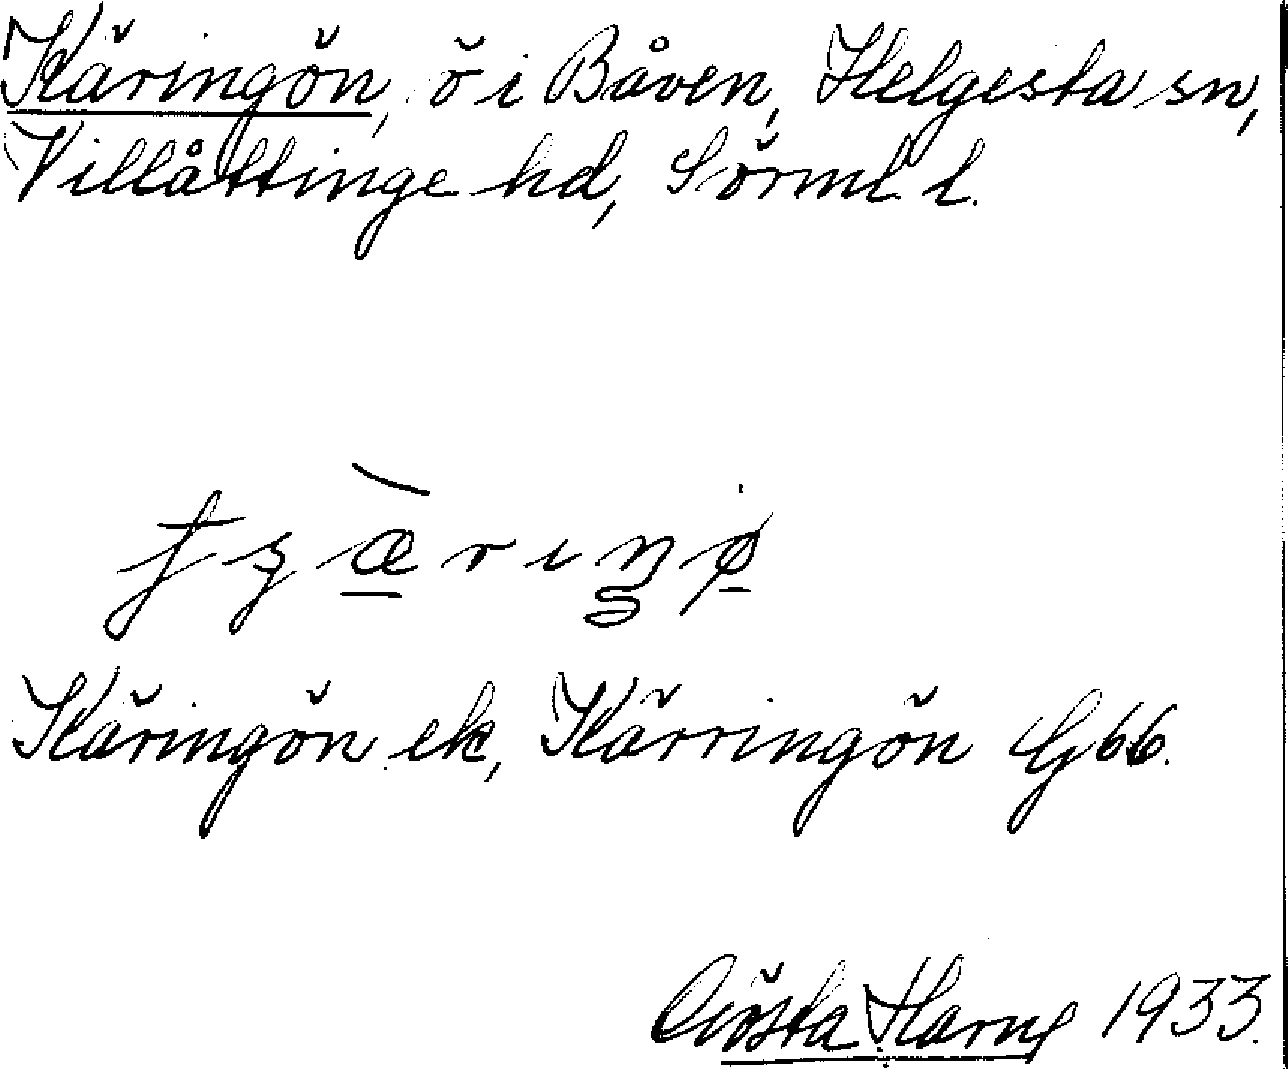 Käringön, ö i Båven, Helgesta sn,
Villåttinge hd, Sörml. l.
Käringön ek, Kärringön G 66.
Gösta Harng 1933.